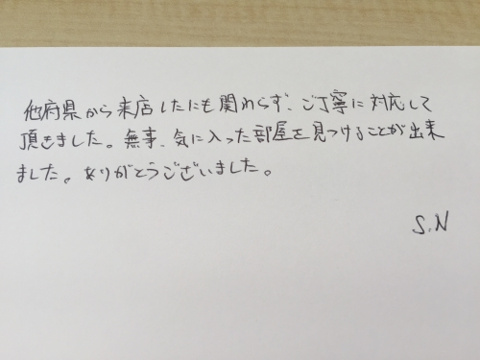 他府県から来店したにも関わらず、ご丁寧に対応して
頂きました。無事、気に入った部屋を見つけることが出来
ました。ありがとうございました。
S.N